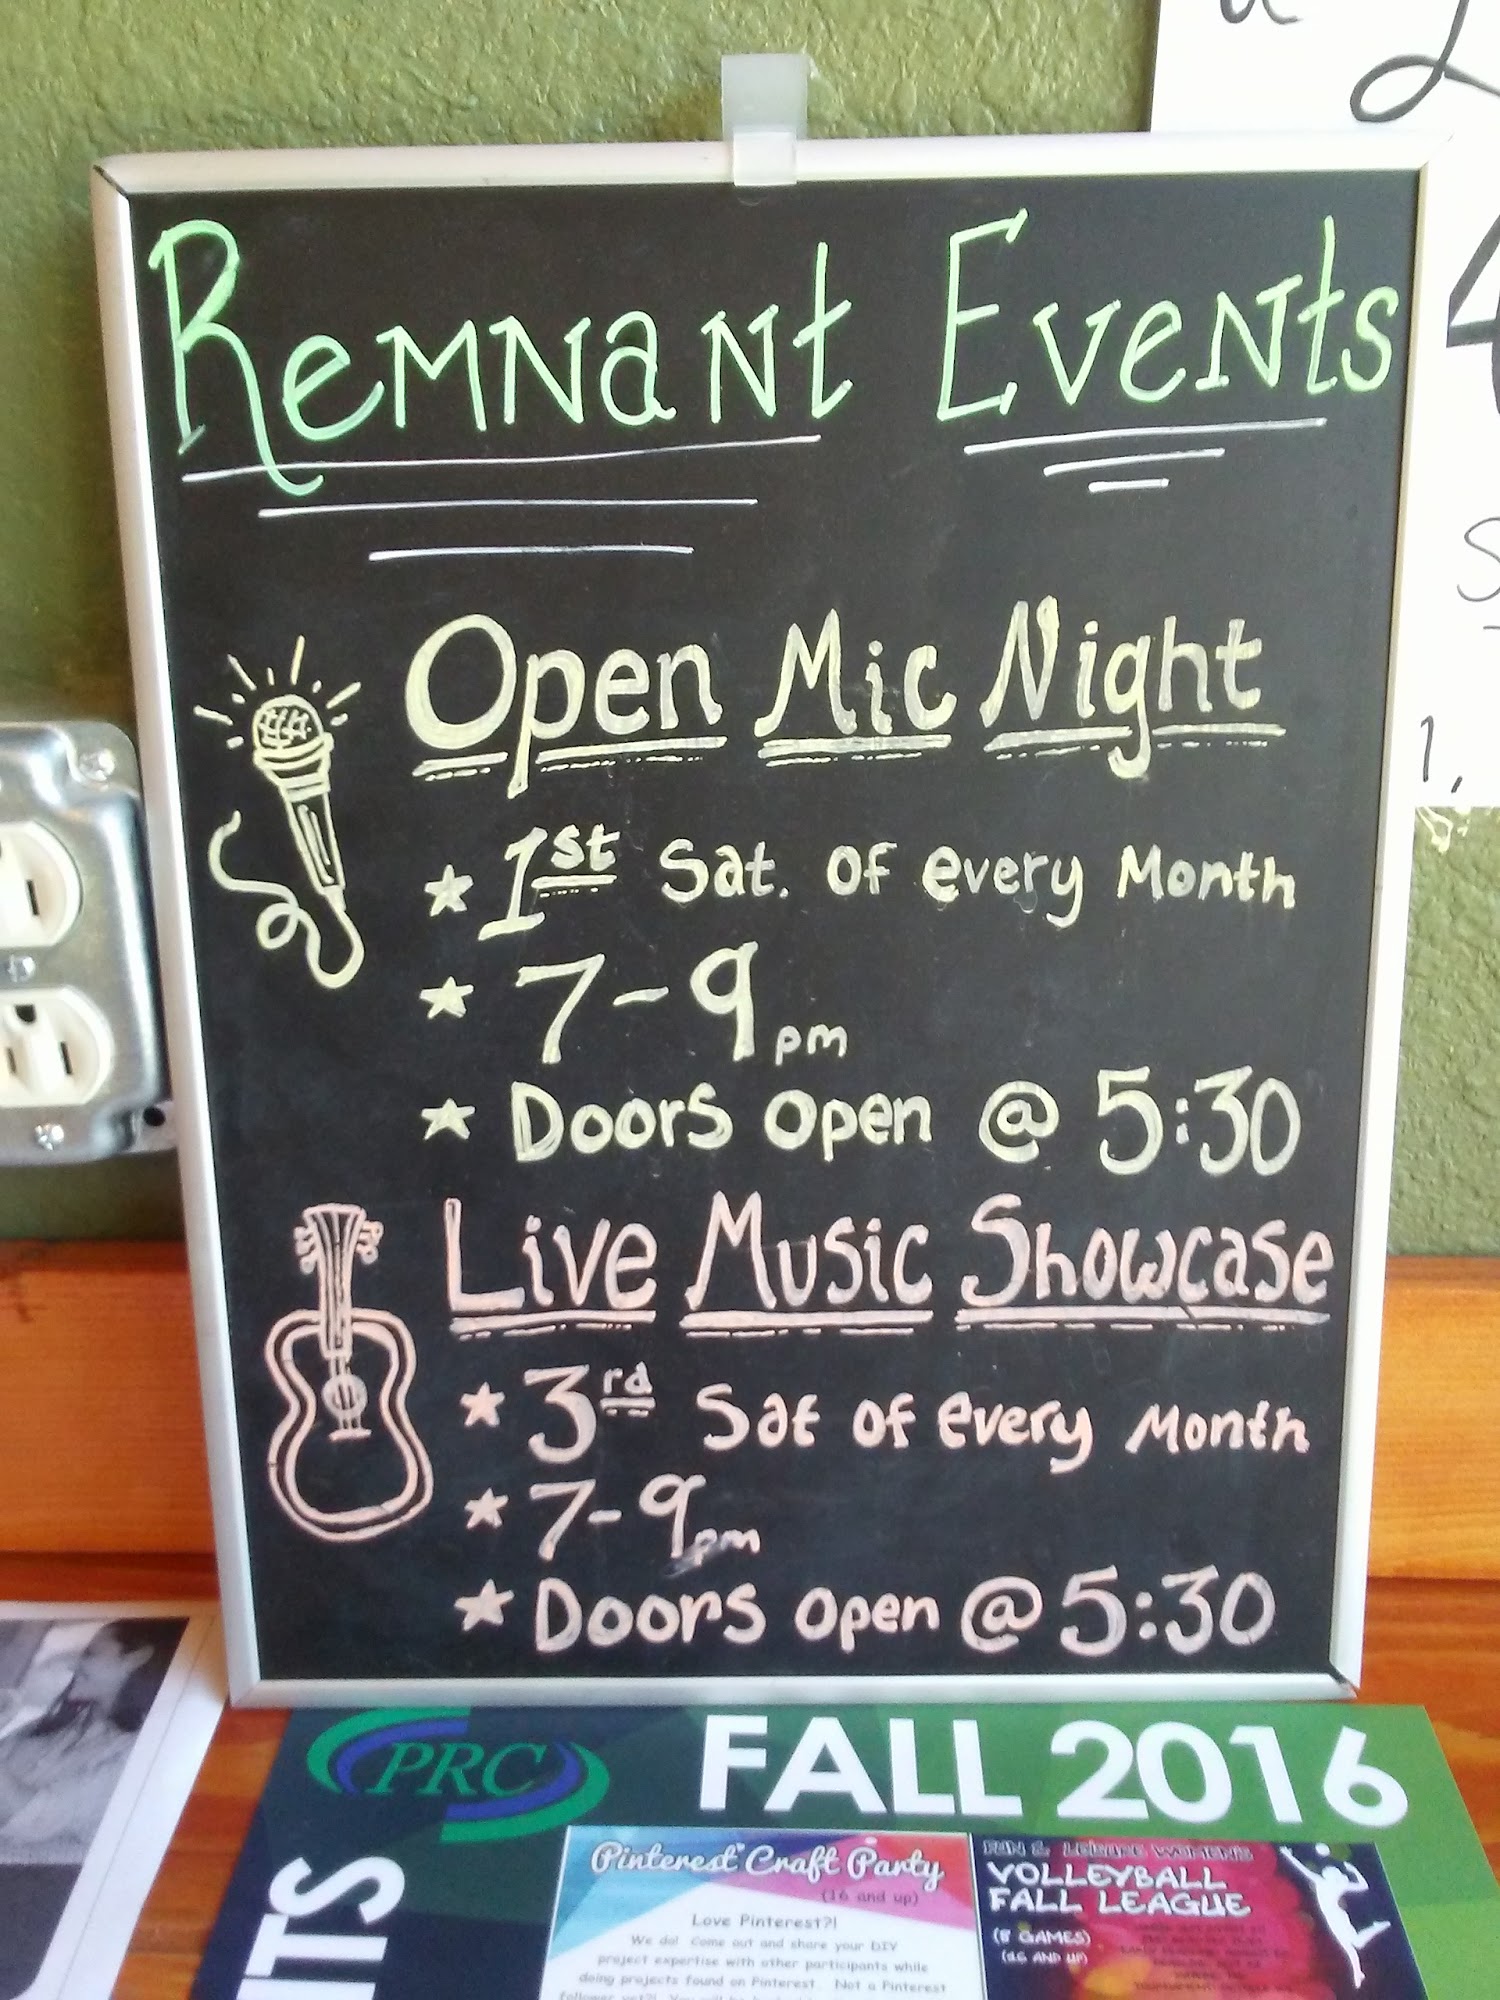 Remnant Events
Open Mic Night
★ 1st Sat. of every Month
★ 7-9pm
★ Doors open @ 5:30
Live Music Showcase
★ 3rd Sat of every Month
★ 7-9pm
★ Doors open @ 5:30
PRC
FALL 2016
Pinterest Craft Party
(16 and up)
Love Pinterest?!
We do! Come out and share your DIY
project expertise with other participants while
doing projects found on Pinterest. Not a Pinterest
FUN & LEISURE WOMEN'S
VOLLEYBALL
FALL LEAGUE
(8 GAMES)
(16 AND UP)